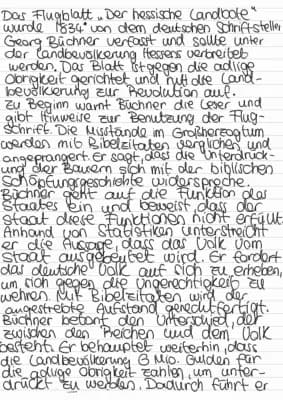 Das Flugblatt „Der hessische Landbote"
wurde 1834 von dem deutschen Schriftsteller
Georg Büchner verfasst und sollte unter
der Landbevölkerung Hessens verbreitet
werden. Das Blatt ist gegen die adlige
Obrigkeit gerichtet und ruft die Land-
bevölkerung zur Revolution auf.
Zu Beginn warnt Büchner die Leser und
gibt Hinweise zur Benutzung der Flug-
schrift. Die Missstände im Großherzogtum
werden mit Bibelzitaten verglichen und
angeprangert. Er sagt, dass die Unterdrück-
ung der Bauern sich mit der biblischen
Schöpfungsgeschichte widerspreche.
Büchner geht auf die Funktion des
Staates ein und beweist, dass der
Staat diese Funktionen nicht erfüllt.
Anhand von Statistiken unterstreicht
er die Aussage, dass das Volk vom
Staat ausgebeutet wird. Er fordert
das deutsche Volk auf sich zu erheben,
um sich gegen die Ungerechtigkeit zu
wehren. Mit Bibelzitaten wird der
angestrebte Aufstand gerechtfertigt.
Büchner betont den Unterschied, der
zwischen den Reichen und dem Volk
besteht. Er behauptet weiterhin, dass
die Landbevölkerung 6 Mio. Gulden für
die adlige Obrigkeit zahlen, um unter-
drückt zu werden. Dadurch führt er